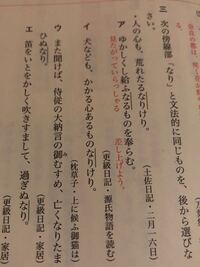 三 次の傍線部「なり」と文法的に同じものを、後から選びな
さい。
人の心も、荒れたるなりけり。 (土佐日記・二月一六日)
ア ゆかしくし給ふなるものを奉らむ。 (更級日記・源氏物語を読む)
見たがっていらっしゃる 差し上げよう。
イ 犬なども、かかる心あるものなりけり。
(枕草子・上に候ふ御猫は)
ウ また聞けば、侍従の大納言の御むすめ、亡くなりたま
ひぬなり。 (更級日記・家居)
エ 笛をいとをかしく吹きすまして、過ぎぬなり。
(更級日記・家居)